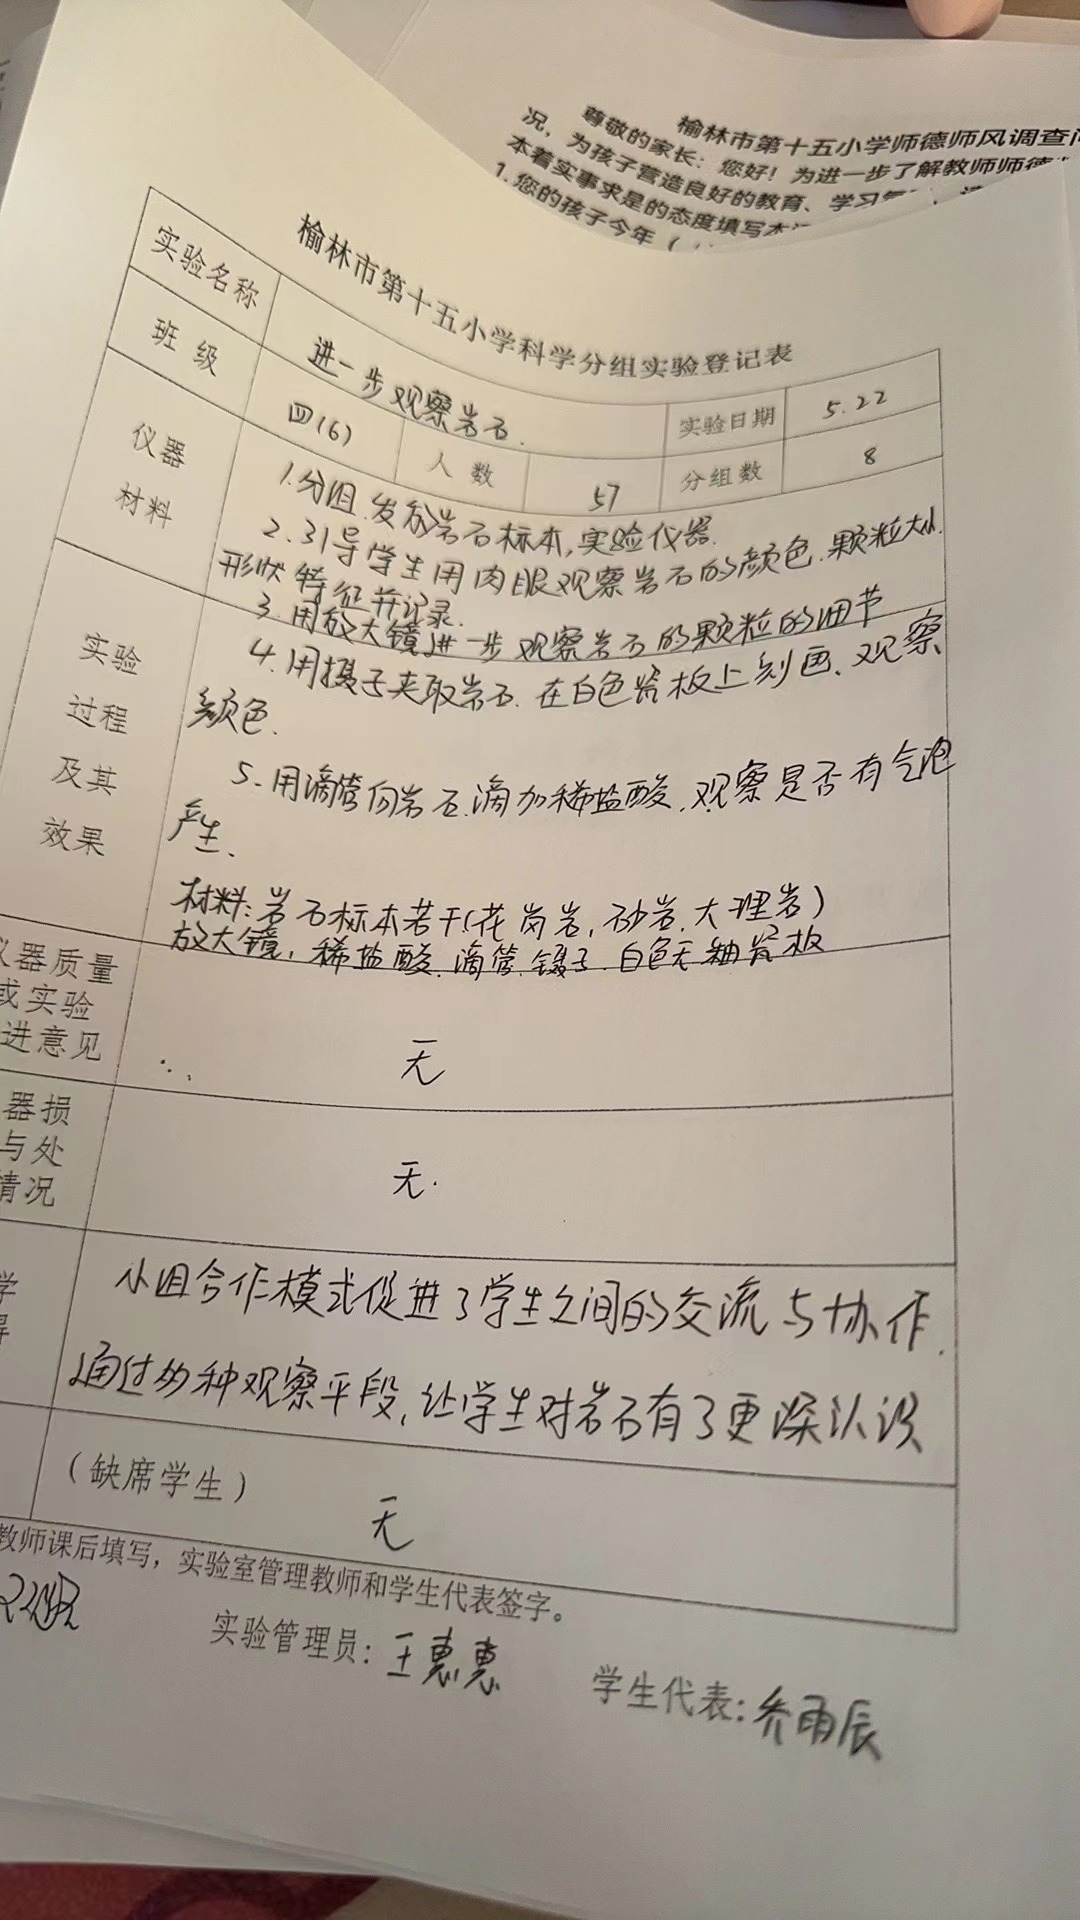 榆林市第十五小学师德师风调查问
尊敬的家长：您好！为进一步了解教师师德
况，为孩子营造良好的教育、学习
本着实事求是的态度填写本
1.您的孩子今年（
榆林市第十五小学科学分组实验登记表
实验名称 进一步观察岩石. 实验日期 5.22
班级 四(6) 人数 57 分组数 8
仪器
材料
1.分组.发放岩石标本,实验仪器.
2.引导学生用肉眼观察岩石的颜色.颗粒大小.
形状特征并记录.
3.用放大镜进一步观察岩石的颗粒的细节
实验
过程
及其
效果
4.用摄子夹取岩石.在白色瓷板上刻画、观察
颜色.
5.用滴管向岩石.滴加稀盐酸.观察是否有气泡
产生.
材料:岩石标本若干(花岗岩,砂岩.大理岩)
放大镜,稀盐酸.滴管.镊子.白色无釉瓷板
仪器质量
或实验
进意见
无
器损
与处
情况
无.
学
得
小组合作模式促进了学生之间的交流与协作.
通过多种观察手段,让学生对岩石有了更深认识
（缺席学生）
无
教师课后填写，实验室管理教师和学生代表签字。
实验管理员：王惠惠 学生代表：乔雨辰